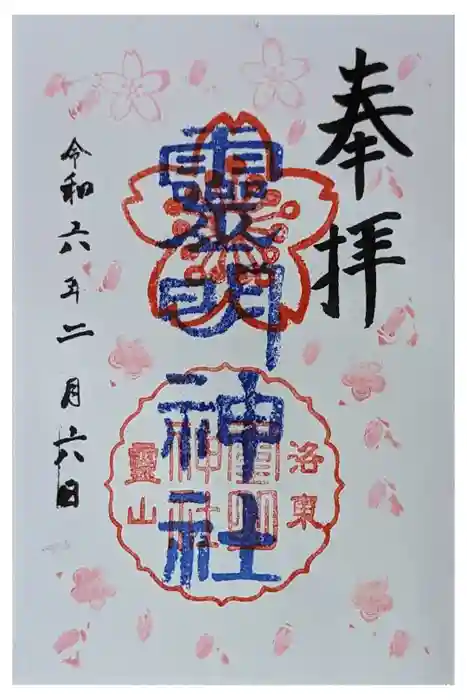 奉拝
靈明
神社
洛東
靈明
神社
靈山
令和六年二月六日